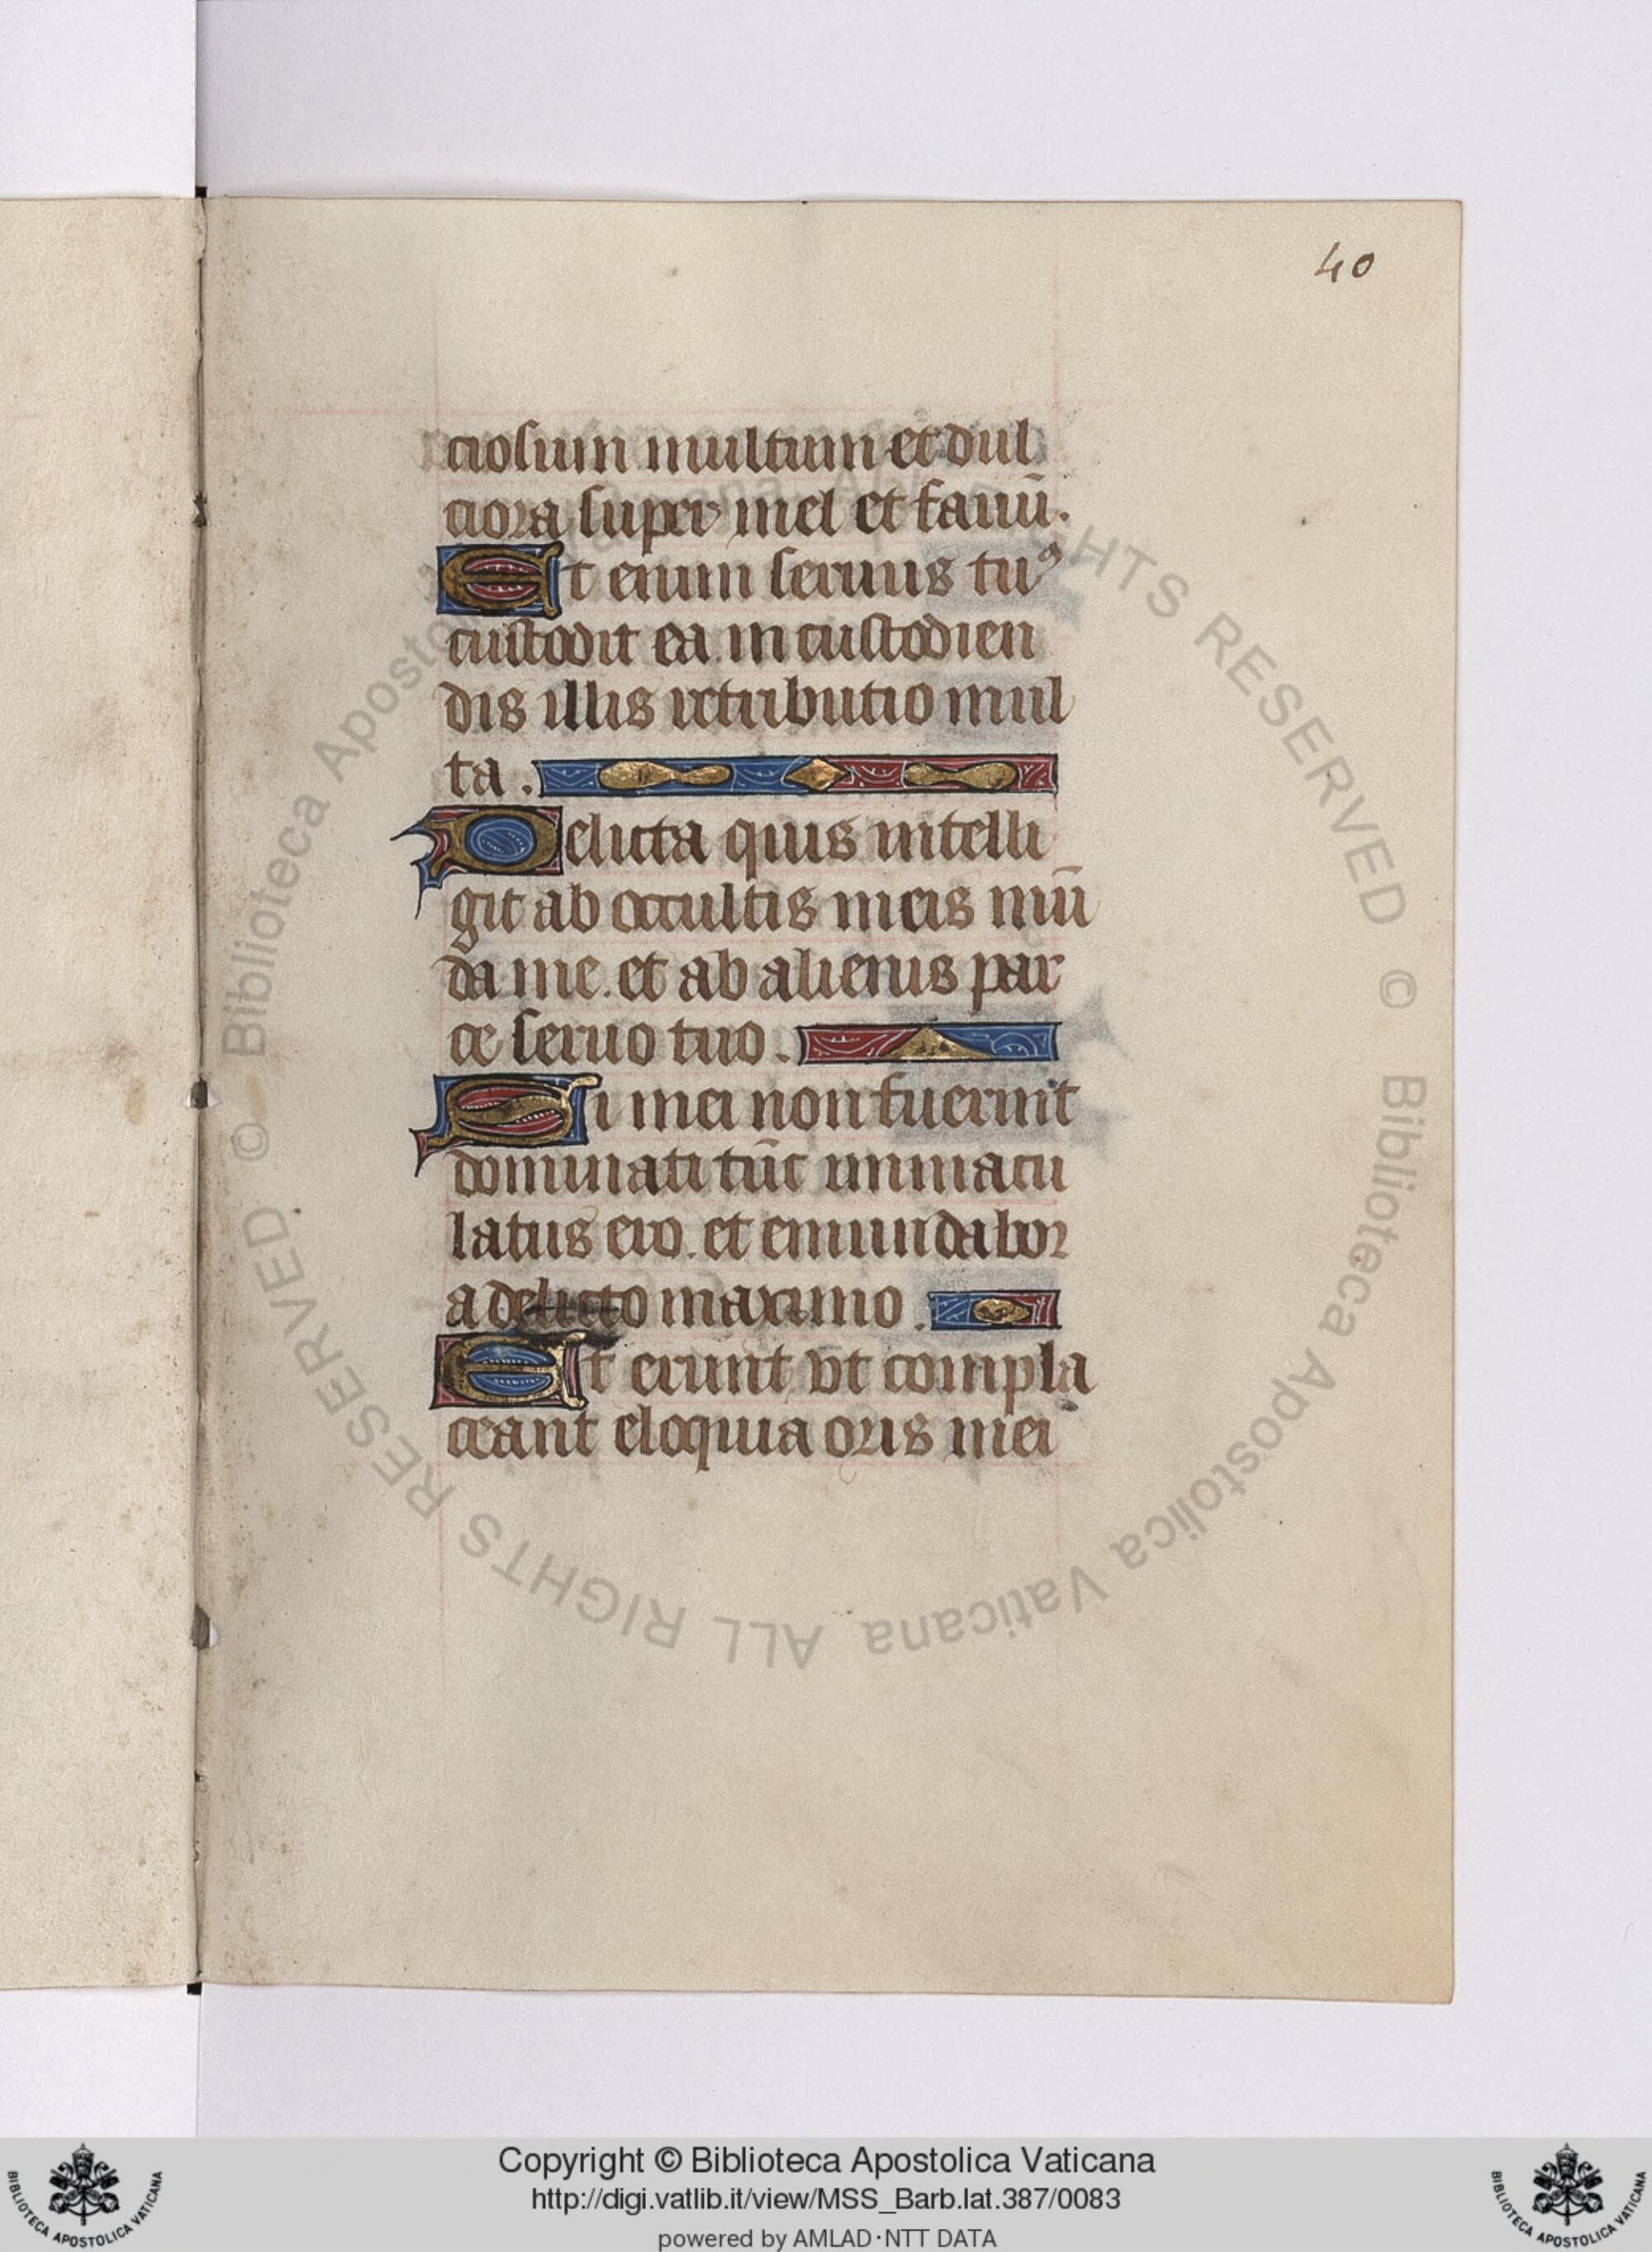 40
ciosum multum et dul
ciora super mel et fauū.
Et enim seruus tuꝰ
custodit ea in custodien
dis illis retributio mul
ta.
Delicta quis intelli
git ab occultis meis mū
da me. et ab alienis par
ce seruo tuo.
Si mei non fuerint
dominati tūc immacu
latus ero. et emundabor
a delicto maximo.
Et erunt vt compla
ceant eloquia oris mei
© Biblioteca Apostolica Vaticana ALL RIGHTS RESERVED © Biblioteca Apostolica Vaticana ALL RIGHTS RESERVED
Copyright © Biblioteca Apostolica Vaticana
http://digi.vatlib.it/view/MSS_Barb.lat.387/0083
powered by AMLAD·NTT DATA
BIBLIOTECA APOSTOLICA VATICANA
BIBLIOTECA APOSTOLICA VATICANA